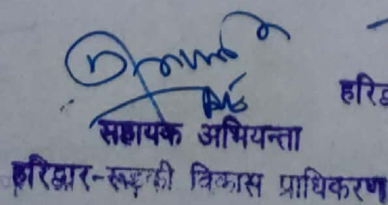 हरिद्व
सहायक अभियन्ता
हरिद्वार-रूड़की विकास प्राधिकरण